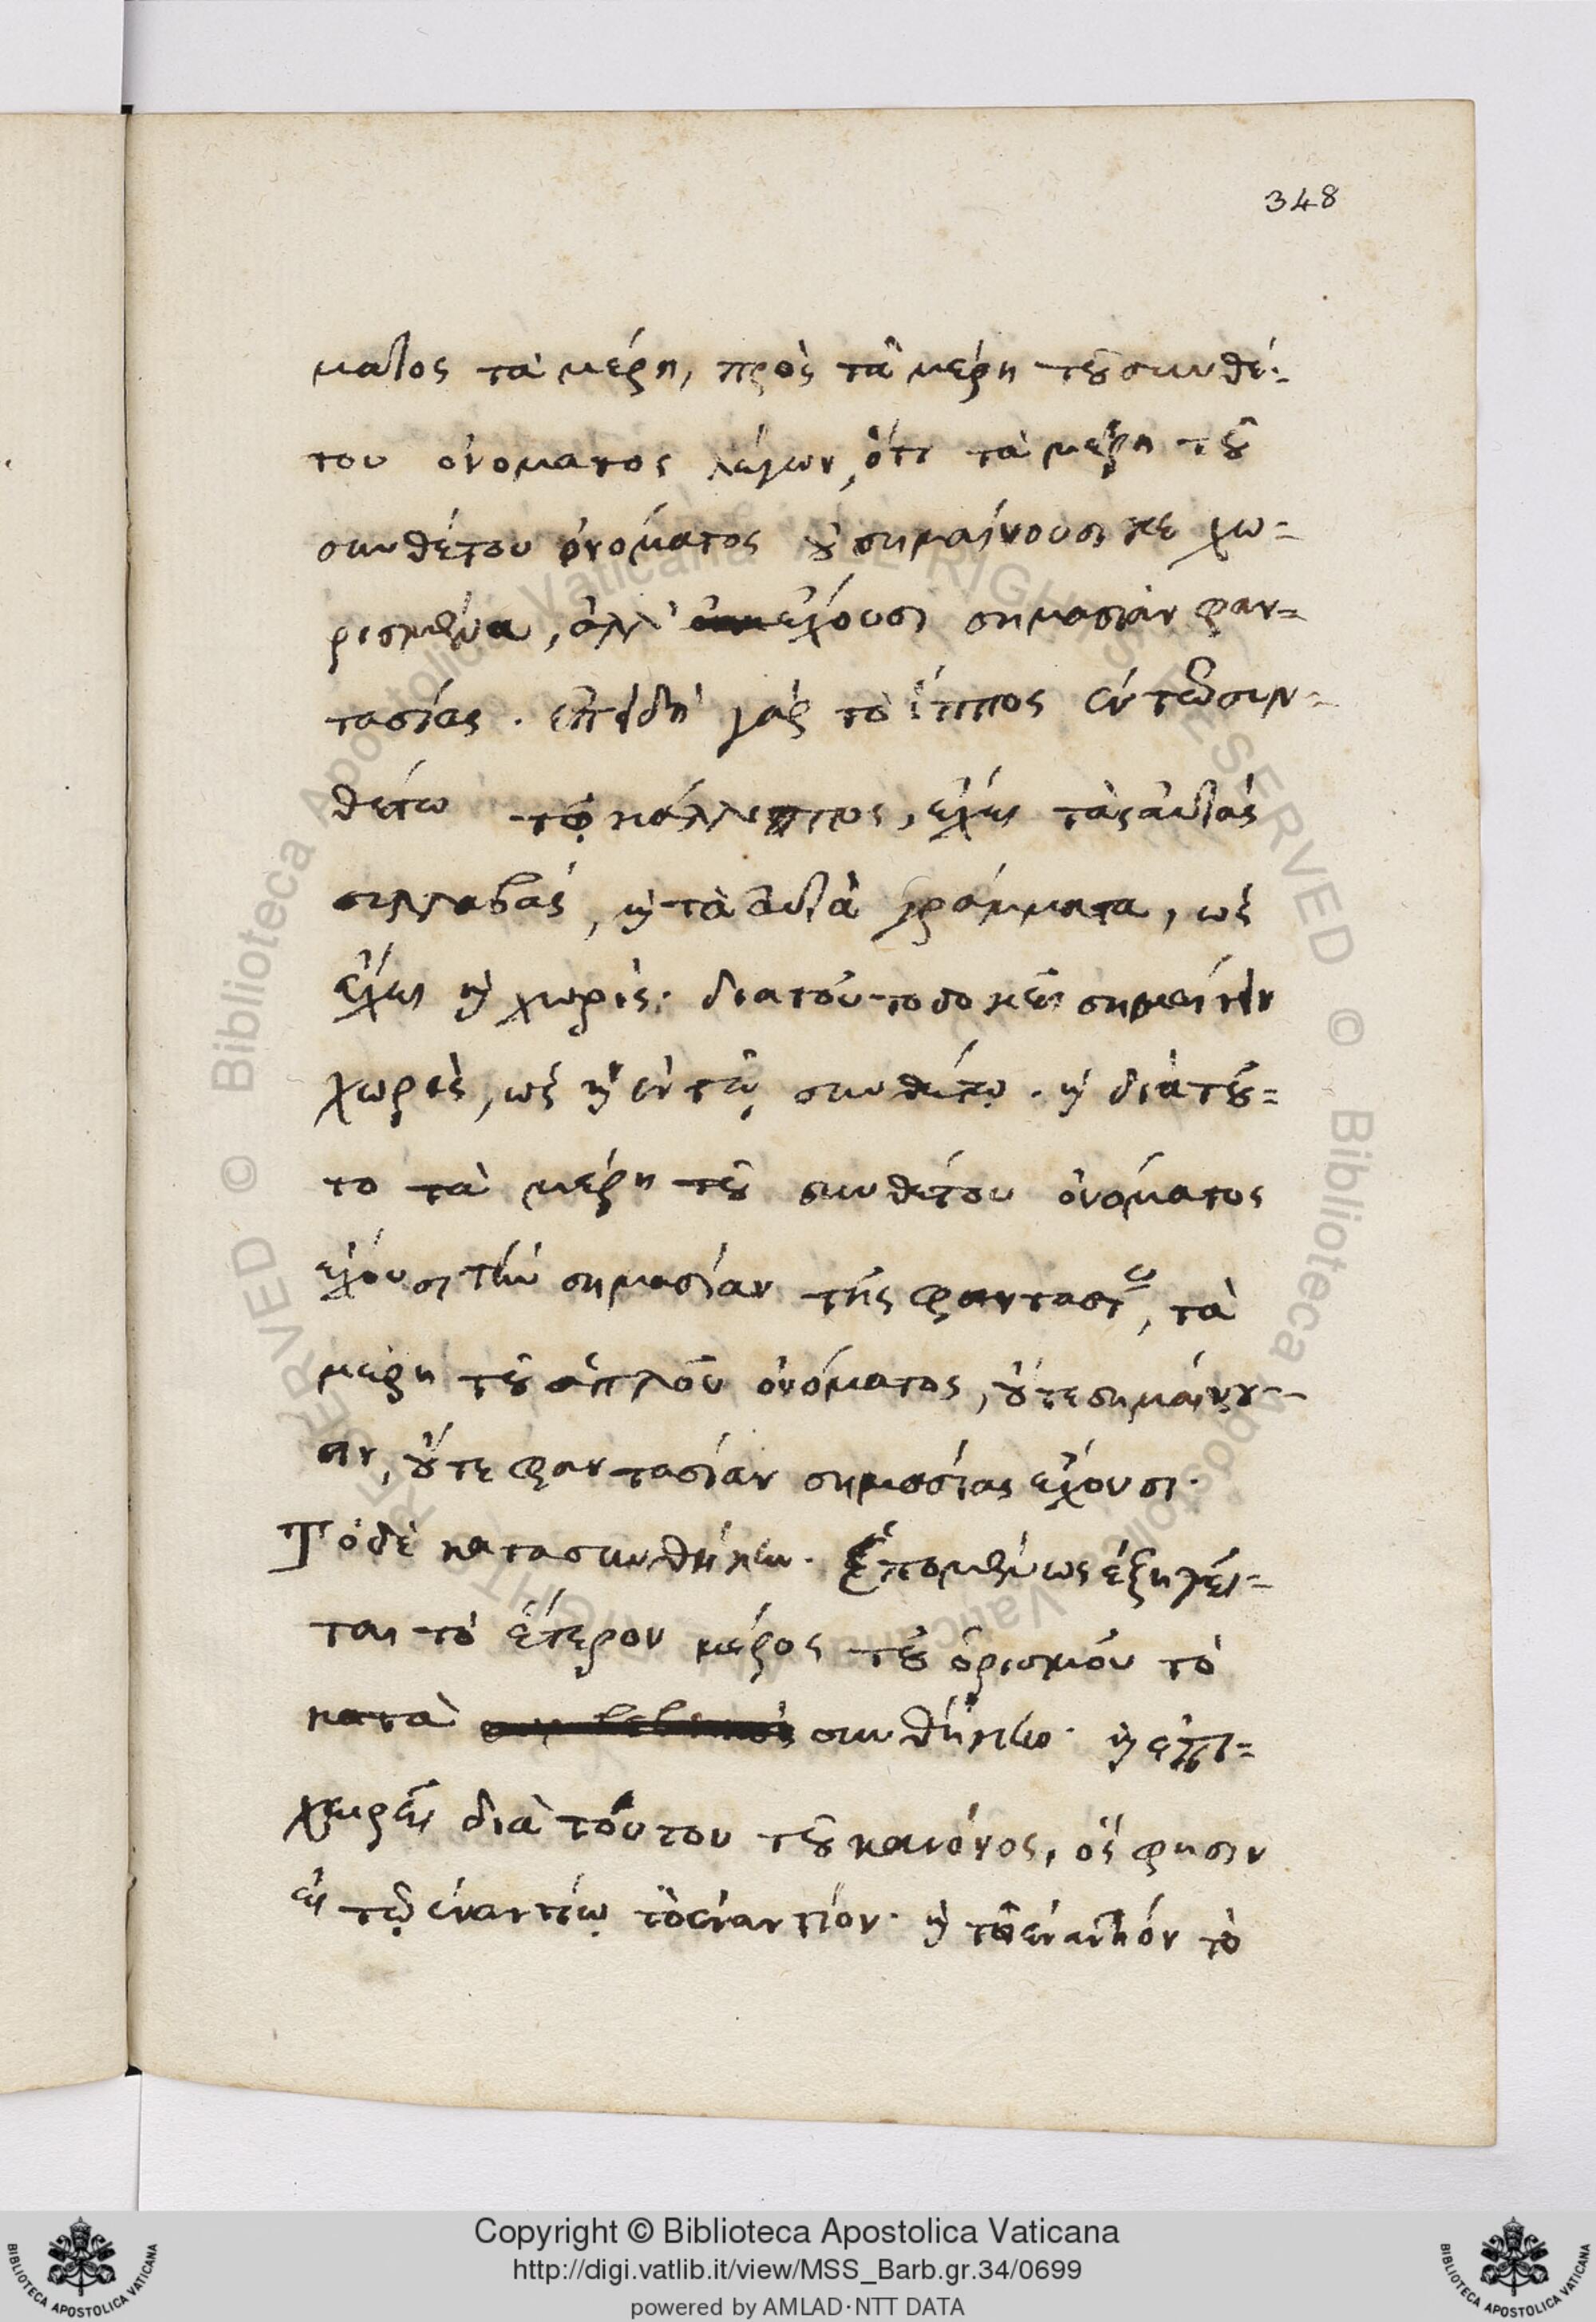 348
ματος τὰ μέρη, πρὸς τὰ μέρη τοῦ συνθέ-
του ὀνόματος λέγων, ὅτι τὰ μέρη τοῦ
συνθέτου ὀνόματος οὐ σημαίνουσι κε χω=
ρισμένα, ἀλλ' ἔχουσι σημασίαν φαν=
τασίας. ἐπειδὴ γὰρ τὸ ἵππος ἐν τῶ συν-
θέτω τῷ κάλλιππος, ἔχει τὰς αὐτὰς
συλλαβάς, καὶ τὰ αὐτὰ γράμματα, ὡς
ἔχει καὶ χωρίς. διατοῦτο δοκεῖ
χωρὶς, ὡς καὶ ἐν τῷ συνθέτῳ. καὶ διὰ τοῦ=
το τὰ μέρη τοῦ συνθέτου ὀνόματος
ἔχουσι τὴν σημασίαν τῆς φαντασίας, τὰ
μέρη τοῦ ἁπλοῦ ὀνόματος, οὔτε σημαίνου-
σιν, οὔτε φαντασίαν σημασίας ἔχουσι.
Τὸ δὲ κατὰ συνθήκην. Ἑπομένως ἐξηγεῖ=
ται τὸ ἕτερον μέρος τοῦ ὁρισμοῦ τὸ
κατὰ συνθήκην. καὶ ἐπι=
χειρεῖ διὰ τούτου τοῦ κανόνος, ὅς φησιν
εἰ τῷ ἐναντίῳ τὸ ἐναντίον. καὶ τῶ ἐναντίον τὸ
Copyright © Biblioteca Apostolica Vaticana
http://digi.vatlib.it/view/MSS_Barb.gr.34/0699
powered by AMLAD·NTT DATA